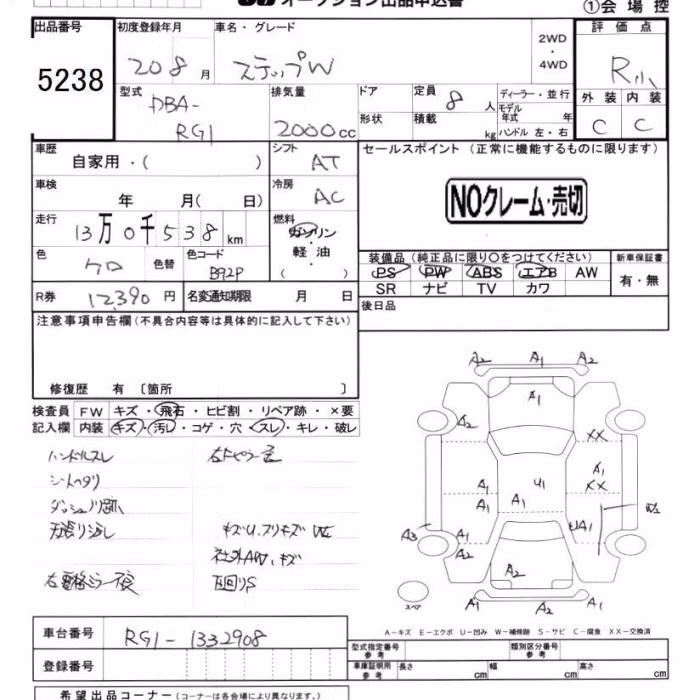 オークション出品申込書
①会場控
出品番号 初度登録年月 車名・グレード 2WD・4WD 評価点
5238 20 8月 ステップW R小
外装 内装
C C
型式 DBA-RG1 排気量 2000cc ドア 形状 定員 8人 積載 kg ディーラー・並行 モデル年式 年 ハンドル 左・右
車歴 自家用・( ) シフト AT セールスポイント(正常に機能するものに限ります)
車検 年 月( 日) 冷房 AC NOクレーム・売切
走行 13万0千538km 燃料 ガソリン 軽油 ( )
色 クロ 色替 色コード B92P
装備品(純正品に限り〇をつけてください) 新車保証書
PS PW ABS エアB AW 有・無
SR ナビ TV カワ
R券 12,390円 名変通知期限 月 日 後日品
注意事項申告欄(不具合内容等は具体的に記入して下さい)
修復歴 有 〔箇所 〕
検査員 FW キズ・飛石・ヒビ割・リペア跡・×要
記入欄 内装 キズ・汚レ・コゲ・穴・スレ・キレ・破レ
ハンドルスレ
シートヘタリ
ダッシュノリ跡
キズU、スリキズ
社外AW、キズ
A2 A1 A2
A1
A2 XX
A1
A1 U1 XX
A1 A1
A3 A1 UA1
A2
A2
スペア
A2 A1 A2
A-キズ E-エクボ U-凹み W-補修跡 S-サビ C-腐食 XX-交換済
車台番号 RG1-1332908
登録番号
型式指定番号 参考 類別区分番号 参考
車庫証明用 参考 長さ cm 幅 cm 高さ cm
希望出品コーナー(コーナーは各会場により異なります。)